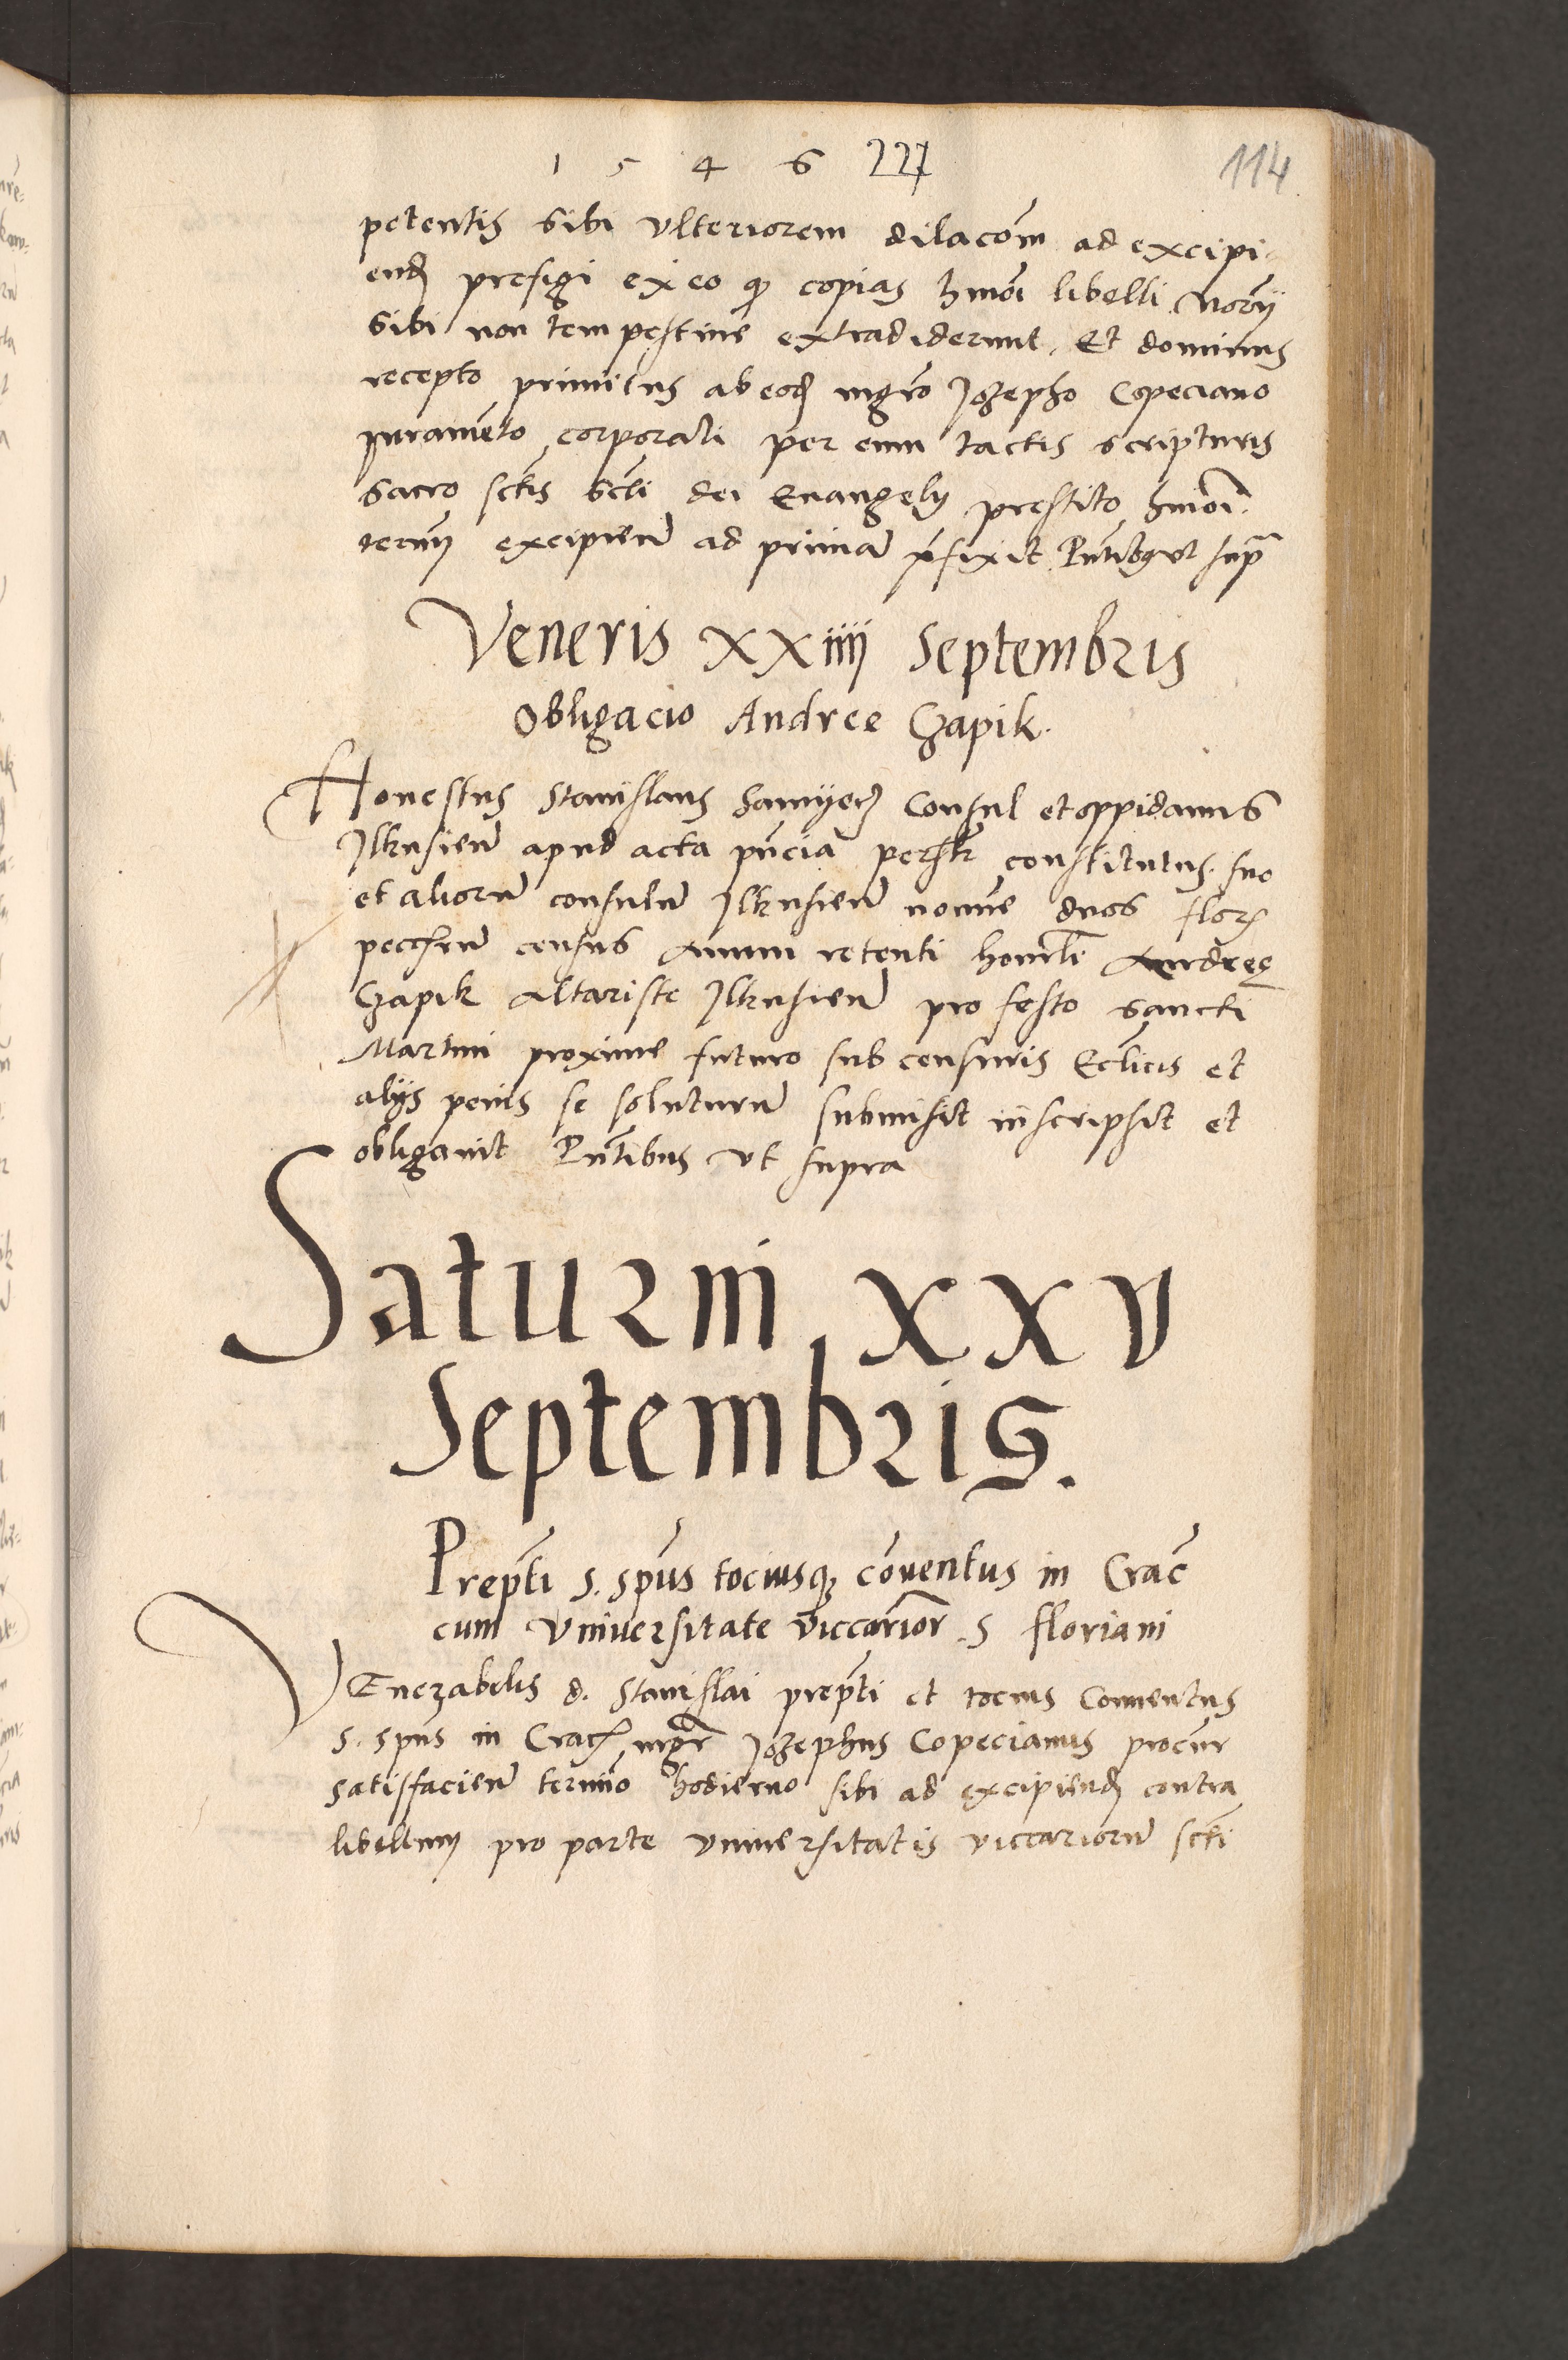 1 5 4 6 227 114
petentis sibi vlteriorem dilacom̃ ad excipi
end presigi ex eo q̄ copias hmoi libelli Norij
sibi non tempestiue extradiderunt. Et dominus
recepto primitus ab eod mgro Jozepho Copeciano
Juramẽto corporali per eum tactis scripturis
sacro sctis scti dei Euangelij prestito hmoi
termi excipien ad primã p̃fixit Pn̄tibq vt supra
Veneris xxiiij Septembris
Obligacio Andree Czapik.
Honestus Stanislaus Consul et oppidanus
Ilkusien apud acta pn̄cia persr constitutus. suo
et aliorũ consulũ Ilkusien noĩe duos flor
peccũrũ census annui retenti honorli Andreę
Czapik altariste Ilkusien pro festo sancti
Martini proxime futuro sub censuris Ecl̃icis et
alijs penis se soluturũ submisit inscripsit et
obligauit Pn̄tibus vt supra
Saturni xxv
Septembris.
Prep̃ti s. sp̃us tociusq conuentus in Crac̃
cum Vniuersitate viccarior̃ . S floriani
VEnerabilis d. Stanislai prep̃ti et tocius Conuentus
s. sp̃us in Crac mgr̃ Jozephus Copecianus procũr
satisfacien termĩo hodierno sibi ad excipiend contra
libellum pro parte vniuersitatis viccariorũ scti